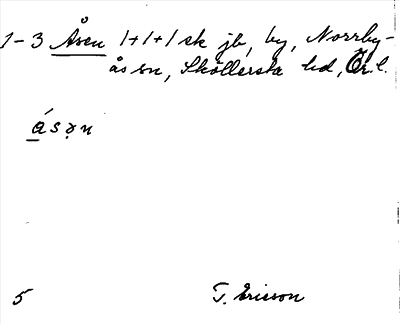 1-3 Åsen 1+1+1 sk jb, by, Norrby-
ås sn, Sköllersta hd, Ör. l.
ásən
5 T. Ericson